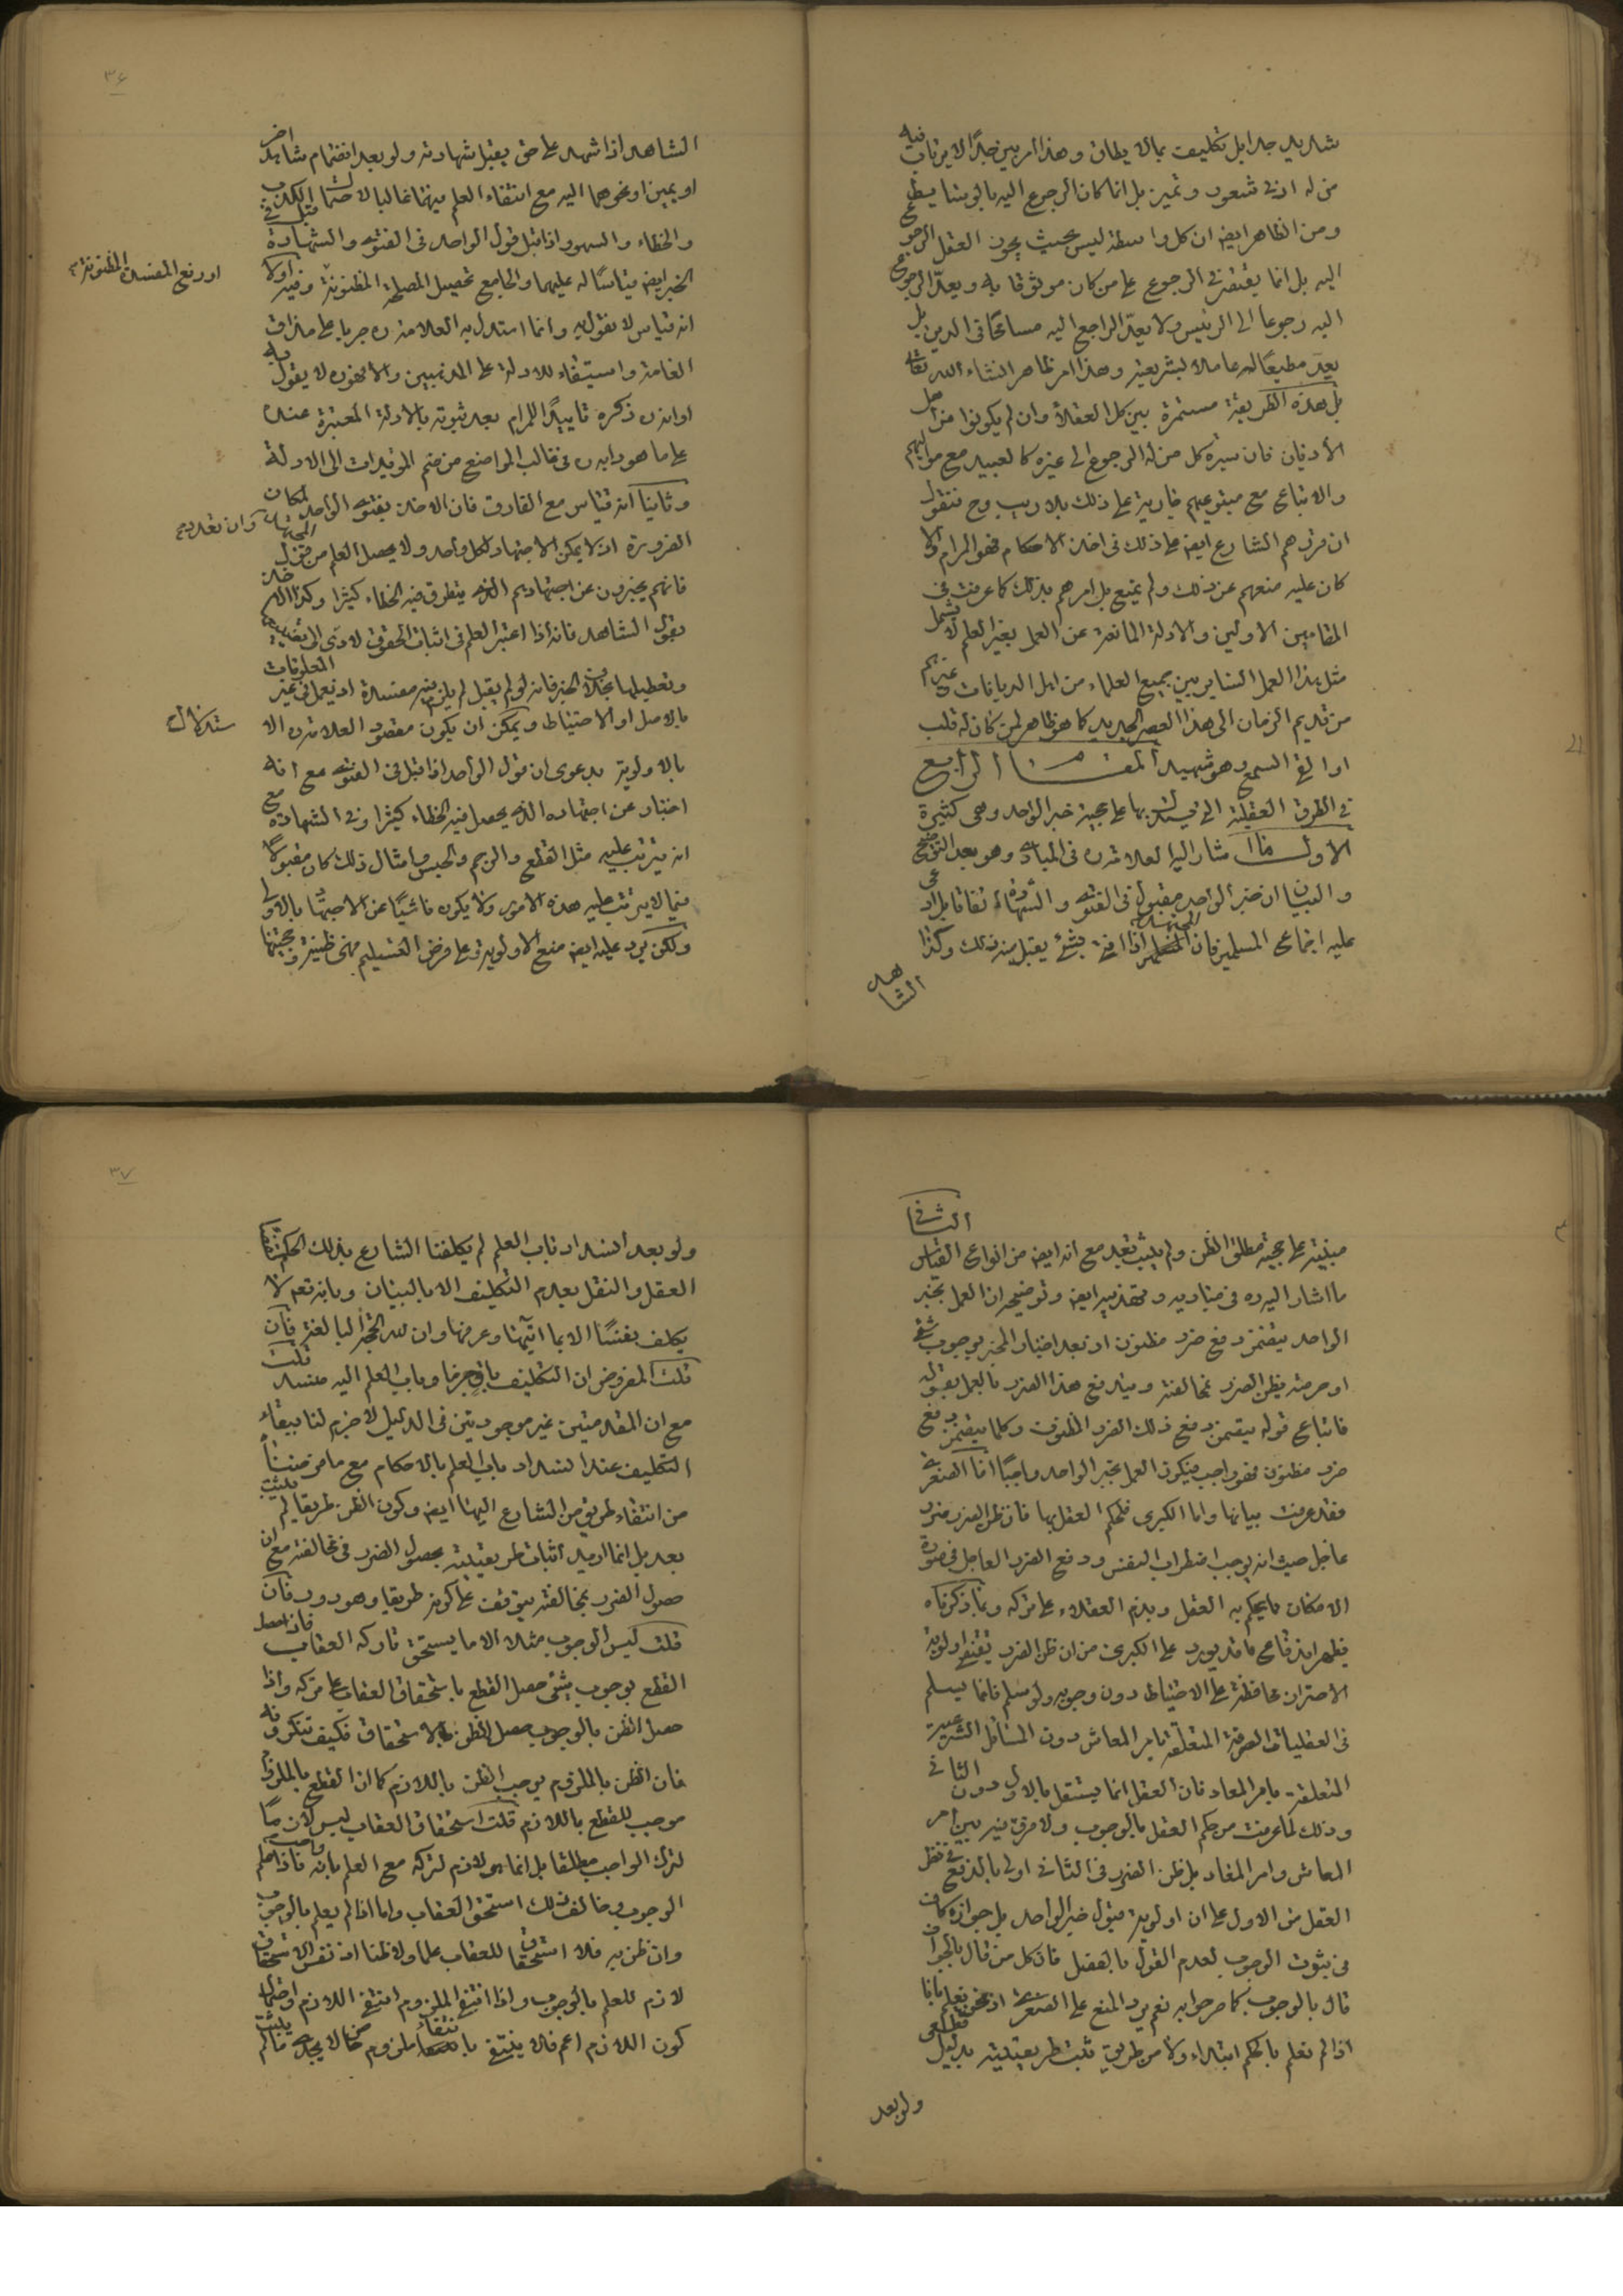 شديد جدا بل تكليف بما لا يطاق وهذا امر بين جدًا لا يرتاب فيه
من له ادنى شعور و تميز بل انما كان الرجوع اليه بالوسايط
ومن الظاهر ايض ان كل واسطة ليس بحيث يجوز العقل الرجوع
اليه بل انما يقتصر في الرجوع على من كان موثوقا به ويعدّ الرجوع
اليه رجوعا الى الرئيس ولا يعدّ الراجع اليه مسامحًا في الدين بل
يعدّ مطيعًا له عاملا بشريعته وهذا امر ظاهر انشاء الله تعالى
بل هذه الطريقة مستمرة بين كل العقلاء وان لم يكونوا من اهل
الاديان فان سيرة كل من له الرجوع الى غيره كالعبيد مع مواليهم
والاتباع مع متبوعيهم جارية على ذلك بلا ريب وح فنقول
ان قررهم الشارع ايض على ذلك في اخذ الاحكام فهو المرام والا
كان عليه منعهم عن ذلك ولم يمنع بل امرهم بذلك كما عرفت في
المقامين الاولين والادلة المانعة عن العمل بغير العلم لا تشمل
مثل هذا العمل الساير بين جميع العلماء من اهل الديانات وغيرهم
من قديم الزمان الى هذا العصر الجديد كما هو ظاهر لمن كان له قلب
او القى السمع وهو شهيد المقام الرابع
في الطرق العقلية التي يستدل بها على حجية خبر الواحد وهي كثيرة
الاول ما اشار اليه العلامة ره في المبادى وهو بعد التوضيح
والبيان ان خبر الواحد مقبول في الفتوى والشهادة اتفاقا بل ادعى
عليه اجماع المسلمين فان المجتهد اذا افتى بشئ يقبل منه ذلك وكذا
الشاهد
٣٦
الشاهد اذا شهد على حق يقبل شهادته ولو بعد انضمام شاهد اخر
او يمين او نحوهما اليه مع انتفاء العلم فيهما غالبا لاحتمال الكذب
والخطاء والسهو واذا قبل قول الواحد في الفتوى والشهادة قبل في
الخبر ايض قياسًا له عليهما والجامع تحصيل المصلحة المظنونة وفيه اولا
او رفع المفسدة المظنونة
انه قياس لا نقول به وانما استدل به العلامة ره جريا على مذاق
العامة واستيفاء للادلة على المذهبين والا فهو ره لا يقول به
او انه ره ذكره تاييدًا للمرام بعد ثبوته بالادلة المعتبرة عنده
على ما هو دابه ره في غالب المواضع من ضم المؤيدات الى الادلة
وثانيًا انه قياس مع الفارق فان الاخذ بفتوى الواحد لمكان
الضرورة اذ لا يمكن الاجتهاد لكل واحد ولا يحصل العلم من قول المجتهد
وان تعدد
فانهم يخبرون عن اجتهادهم الذى يتطرق فيه الخطاء كثيرا وكذا الاخذ
بقول الشاهد فانه اذا اعتبر العلم في اثبات الحقوق لادّى الى تضييعها
وتعطيلها بخلاف الخبر فانه لو لم يقبل لم يلزم منه مفسدة اذ نعمل في غير المعلومات
بالاصل او الاحتياط ويمكن ان يكون مقصود العلامة ره الا
ستدلال
بالاولوية بدعوى ان قول الواحد اذا قبل في الفتوى مع انه
اخبار عن اجتهاده الذى يحصل فيه الخطاء كثيرا وفي الشهادة مع
انه يترتب عليه مثل القطع والرجم والحبس وامثال ذلك كان مقبولًا
فيما لا يترتب عليه هذه الامور ولا يكون ناشيًا عن الاجتهاد بالاولى
ولكن يرد عليه ايض منع الاولوية وعلى فرض التسليم فهى ظنية وحجيتها
مبنية على حجية مطلق الظن ولم يثبت بعد مع انه ايض من انواع القياس الثاني
ما اشار اليه ره في مباديه وتهذيبه ايض وتوضيحه ان العمل بخبر
الواحد يتضمن دفع ضرر مظنون اذ بعد اخبار المخبر بوجوب شئ
او حرمته يظن الضرر بمخالفته ويندفع هذا الضرر بالعمل بقوله
فاتباع قوله يتضمن دفع ذلك الضرر المظنون وكلما يتضمن دفع
ضرر مظنون فهو واجب فيكون العمل بخبر الواحد واجبًا اما الصغرى
فقد عرفت بيانها واما الكبرى فلحكم العقل بها فان ظن الضرر ضرر
عاجل حيث انه يوجب اضطراب النفس ودفع الضرر العاجل في صورة
الامكان مما يحكم به العقل ويذم العقلاء على تركه وبما ذكرناه
يظهر اندفاع ما قد يورد على الكبرى من ان ظن الضرر يقتضى اولوية
الاحتراز محافظة على الاحتياط دون وجوبه ولو سلم فانما يسلم
في العقليات الصرفة المتعلقة بامر المعاش دون المسائل الشرعية
المتعلقة بامر المعاد فان العقل انما يستقل بالاول دون الثانى
وذلك لما عرفت من حكم العقل بالوجوب ولا فرق فيه بين امر
المعاش وامر المعاد بل ظن الضرر في الثانى اولى بالدفع في نظر
العقل من الاول على ان اولوية قبول خبر الواحد بل جوازه كاف
في ثبوت الوجوب لعدم القول بالفصل فان كل من قال بالجواز
قال بالوجوب كما صرحوا به نعم يرد المنع على الصغرى اذ نحن نعلم بانا
اذا لم نعلم بالحكم ابتداء ولا من طريق ثبت طريقيته بدليل قطعى
ولو بعد
٣٧
ولو بعد انسداد باب العلم لم يكلفنا الشارع بذلك الحكم
العقل والنقل بعدم التكليف الا بالبيان وبانه تعم لا
يكلف نفسًا الا بما اتيها وعرفها وان لله الحجة البالغة فان
قلت المفروض ان التكليف باق جزما وباب العلم اليه منسد قلت
مع ان المقدمتين غير موجودتين في الدليل لا جزم لنا ببقاء
التكليف عند انسداد باب العلم بالاحكام مع ما فرضنا
من انتفاء طريق من الشارع اليها ايض وكون الظن طريقا لم يثبت
بعد بل انما اريد اثبات طريقيته بحصول الضرر في مخالفته مع ان
حصول الضرر بمخالفته يتوقف على كونه طريقا وهو دور فان
قلت ليس الوجوب مثلا الا ما يستحق تاركه العقاب فاذا حصل
القطع بوجوب شئ حصل القطع باستحقاق العقاب على تركه واذا
حصل الظن بالوجوب حصل الظن بالاستحقاق فكيف تنكرونه
فان الظن بالملزوم يوجب الظن باللازم كما ان القطع بالملزوم
موجب للقطع باللازم قلت استحقاق العقاب ليس لازمًا
لترك الواجب مطلقا بل انما هو لازم لتركه مع العلم بانه واجب فاذا علم
الوجوب وخالف ذلك استحق العقاب واما اذا لم يعلم بالوجوب
وان ظن به فلا استحقاق للعقاب علما ولا ظنا اذ نفس الاستحقاق
لازم للعلم بالوجوب واذا انتفى الملزوم انتفى اللازم واحتمال
كون اللازم اعم فلا ينتفى بانتفاء ملزوم خاص لا يجدى ما لم يثبت